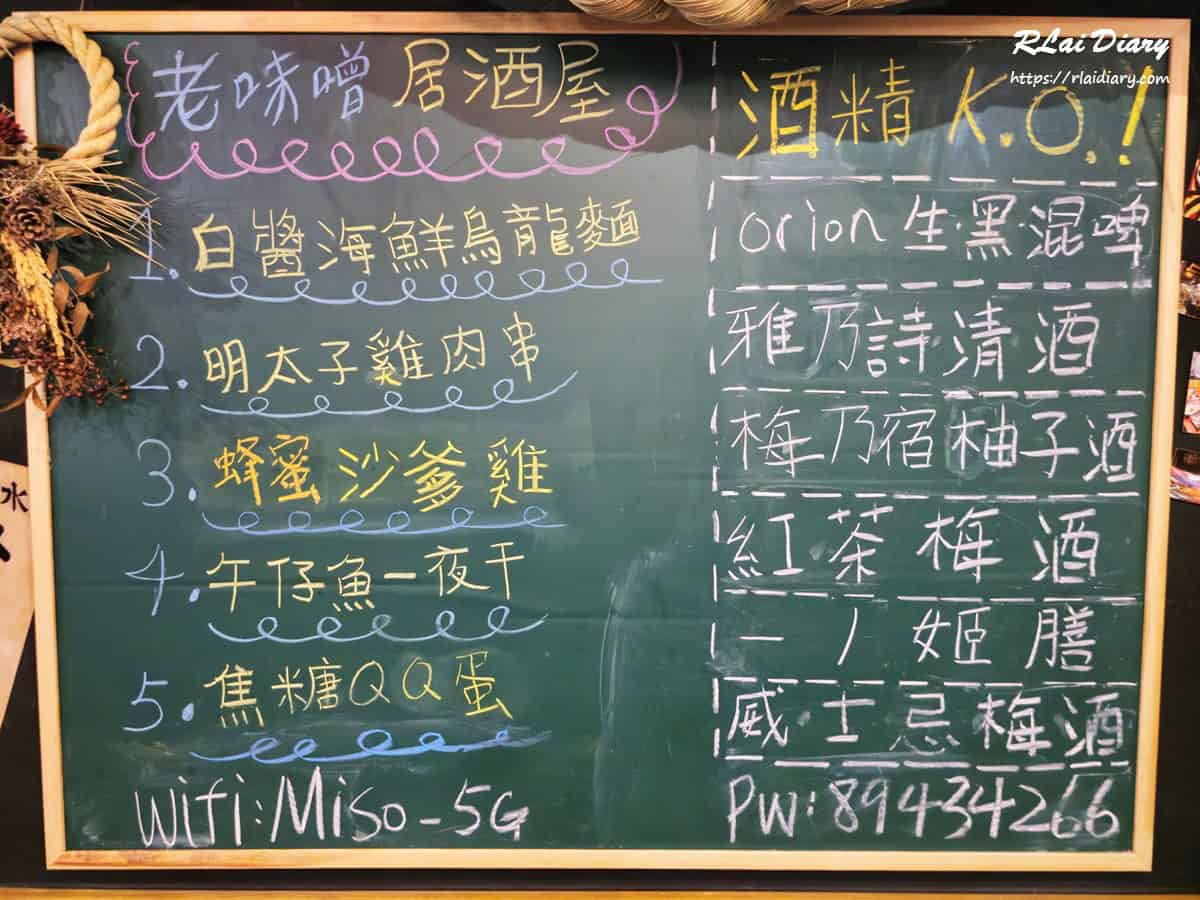 RLai Diary
https://rlaidiary.com
老味噌 居酒屋
1. 白醬海鮮烏龍麵
2. 明太子雞肉串
3. 蜂蜜沙爹雞
4. 午仔魚一夜干
5. 焦糖QQ蛋
Wifi:Miso_5G
酒精 K.O.!
orion 生·黑·混啤
雅乃詩清酒
梅乃宿柚子酒
紅茶梅酒
一ノ姬膳
威士忌梅酒
PW:89434266
水